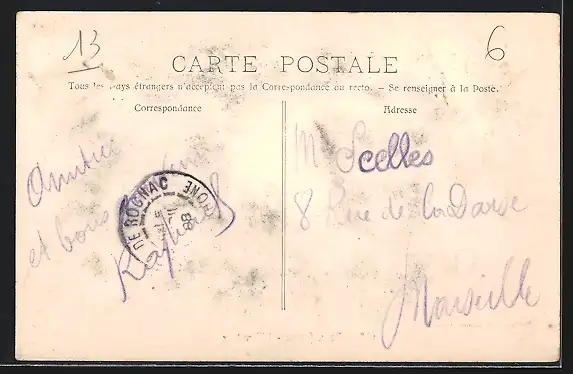 13
6
CARTE POSTALE
Tous les pays étrangers n'acceptent pas la Correspondance au recto. — Se renseigner à la Poste.
Correspondance
Adresse
et bons
Raymond
DE ROGNAC RHONE
Mr Scelles
8 Rue de la Darse
Marseille